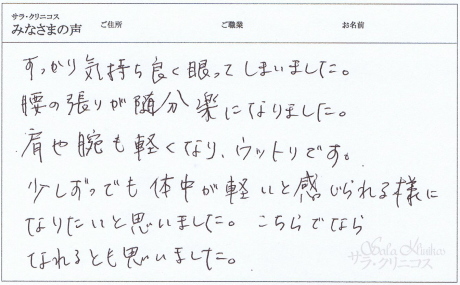 サラ・クリニコス
みなさまの声 ご住所 ご職業 お名前
すっかり気持ち良く眠ってしまいました。
腰の張りが随分楽になりました。
肩や腕も軽くなり、ウットリです。
少しずつでも体中が軽いと感じられる様に
なりたいと思いました。こちらでなら
なれるとも思いました。
Sala Klinikos
サラ・クリニコス